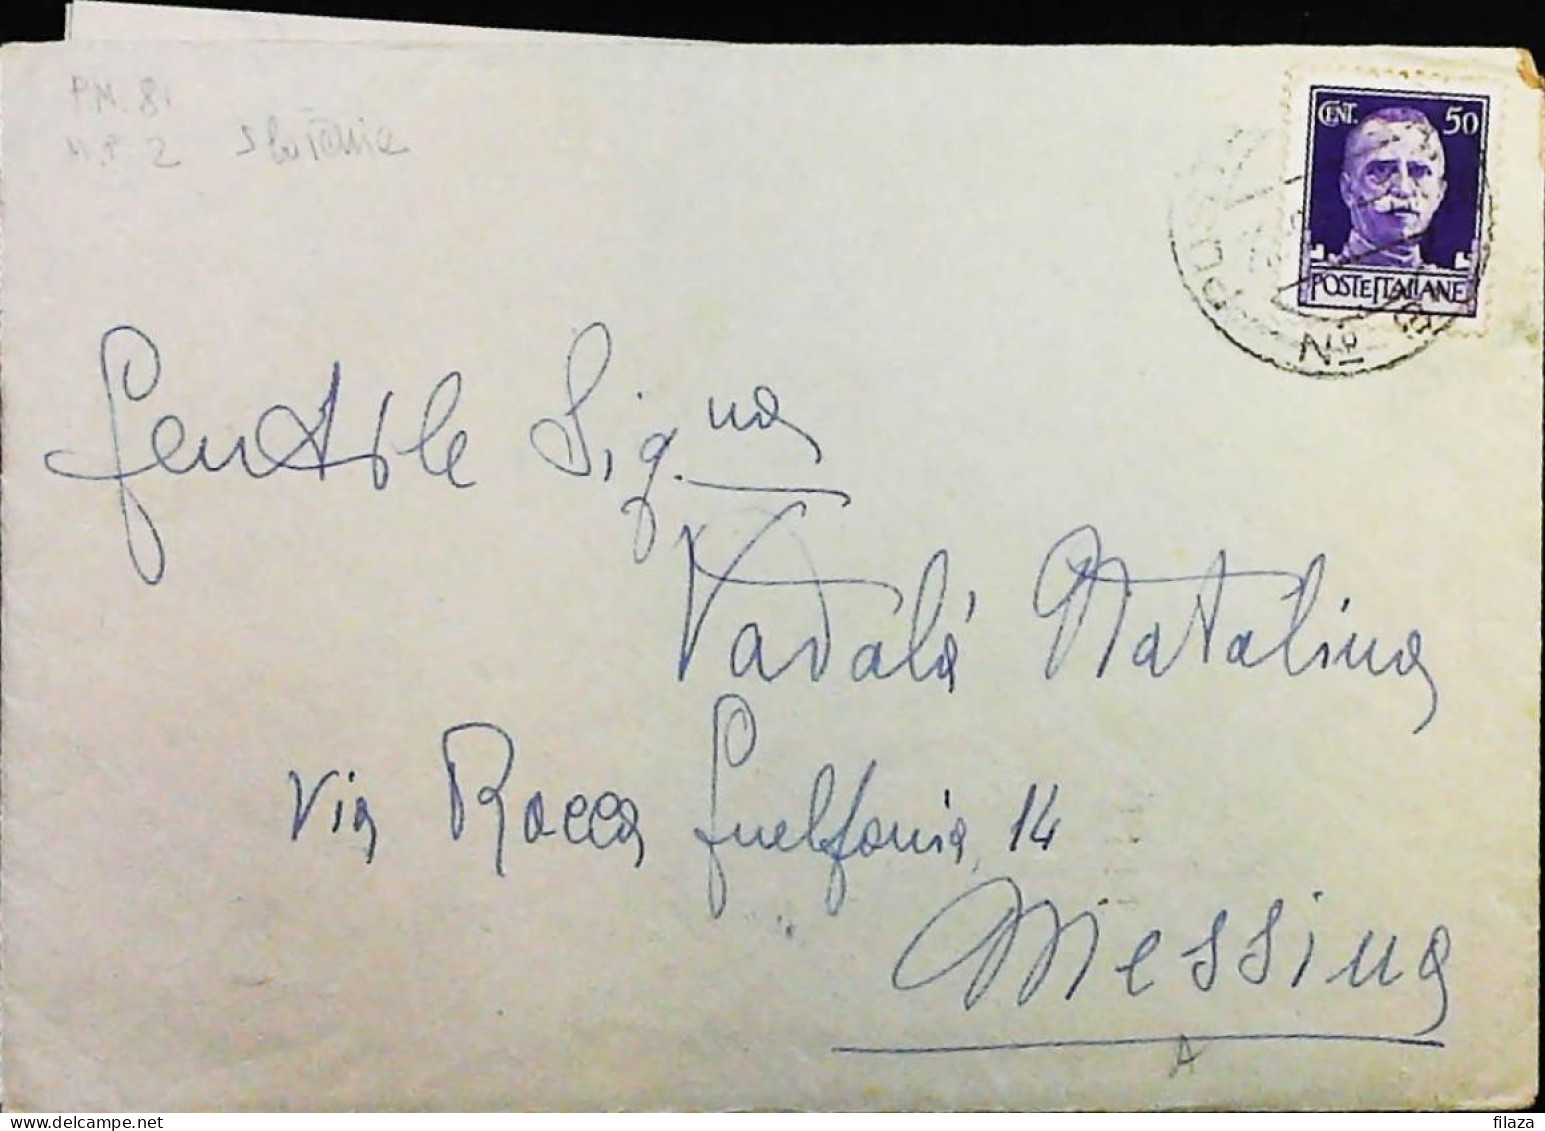 P.M. 81
N.P. 2
CENT. 50
POSTE ITALIANE
Nº
Gentile Sig.na
Vadalá Natalina
Via Rocca Guelfonia, 14
Messina
A
filaza